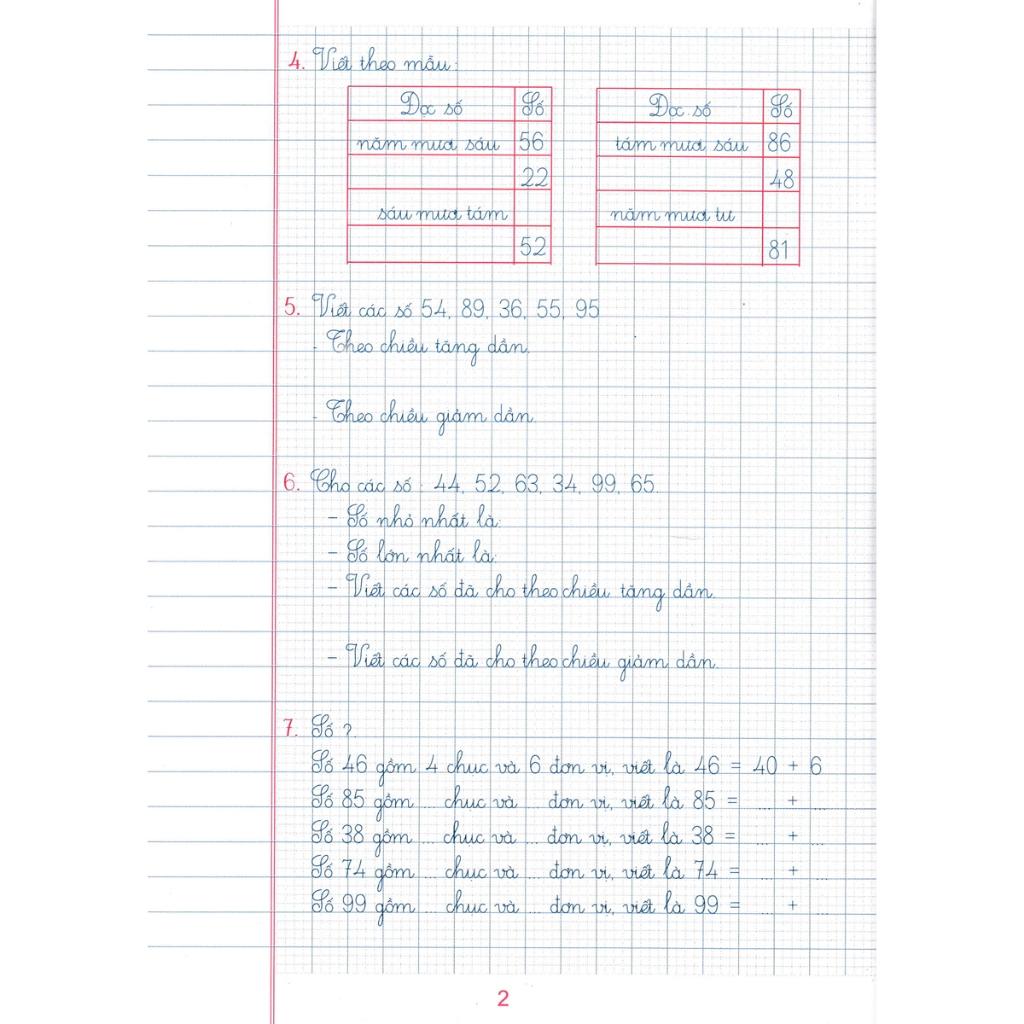 4. Viết theo mẫu:
Đọc số Số
năm mươi sáu 56
22
sáu mươi tám
52
Đọc số Số
tám mươi sáu 86
48
năm mươi tư
81
5. Viết các số 54, 89, 36, 55, 95
- Theo chiều tăng dần.
- Theo chiều giảm dần.
6. Cho các số : 44, 52, 63, 34, 99, 65.
- Số nhỏ nhất là:
- Số lớn nhất là:
- Viết các số đã cho theo chiều tăng dần.
- Viết các số đã cho theo chiều giảm dần.
7. Số ?
Số 46 gồm 4 chục và 6 đơn vị, viết là 46 = 40 + 6
Số 85 gồm ... chục và ... đơn vị, viết là 85 = ... + ...
Số 38 gồm ... chục và ... đơn vị, viết là 38 = ... + ...
Số 74 gồm ... chục và ... đơn vị, viết là 74 = ... + ...
Số 99 gồm ... chục và ... đơn vị, viết là 99 = ... + ...
2